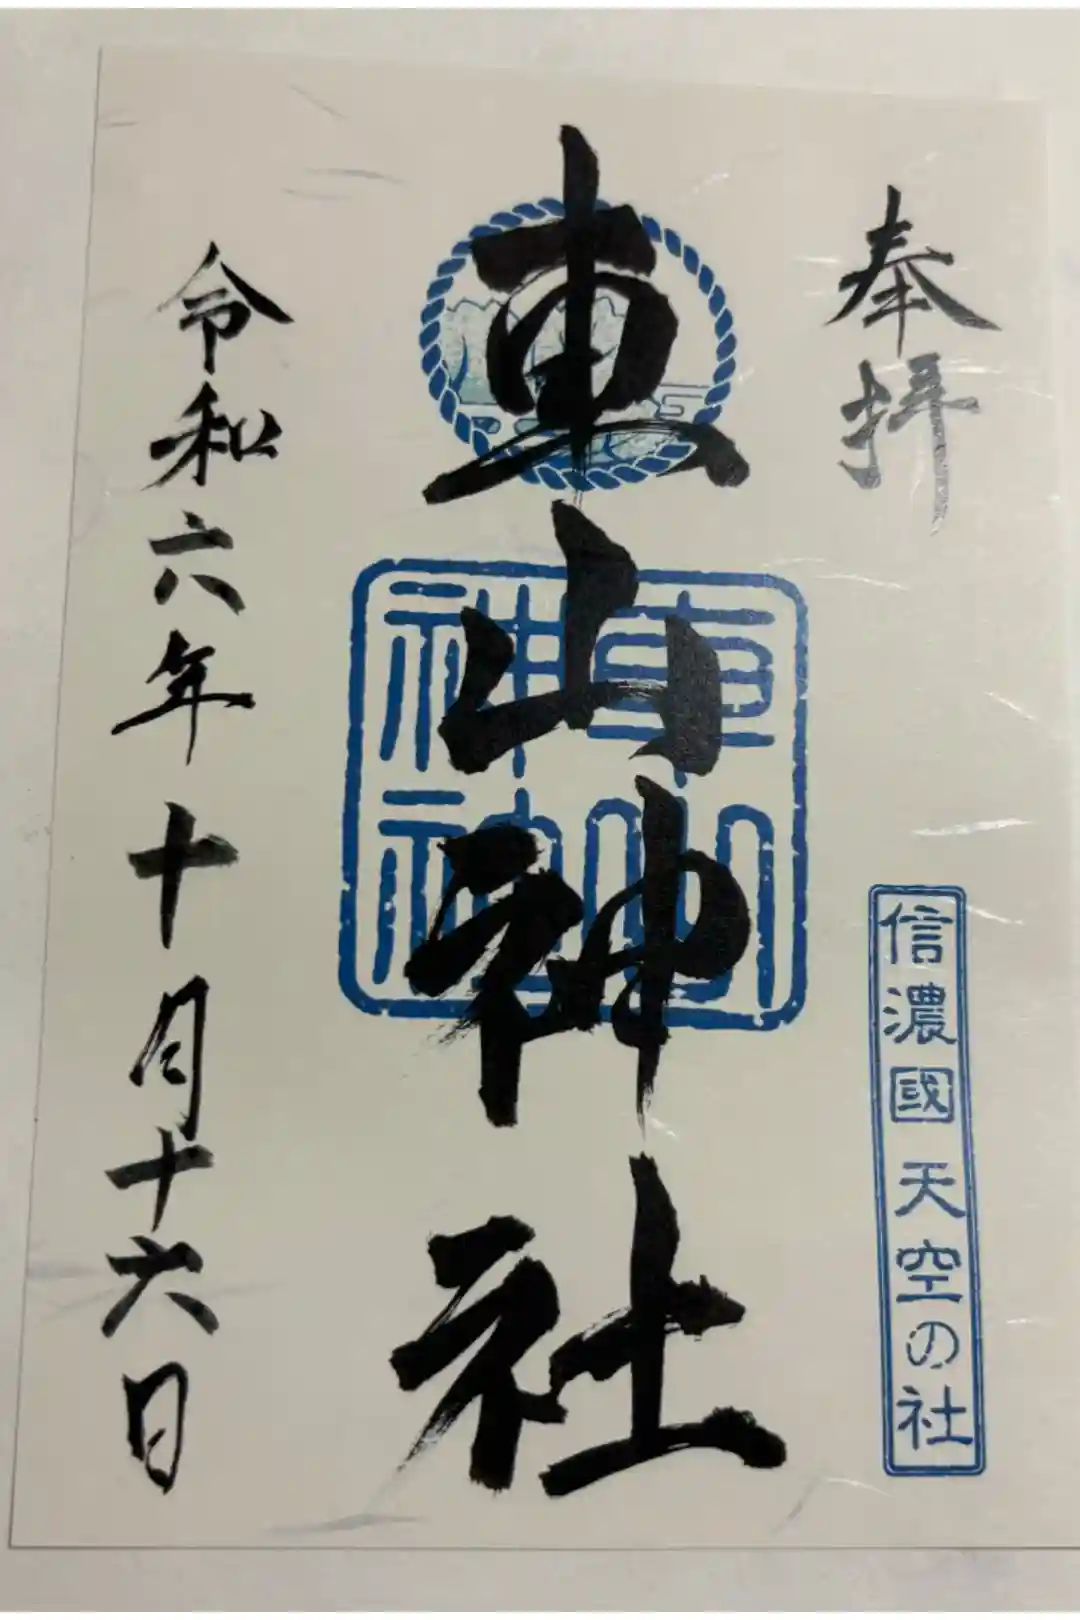 奉拝
信濃國天空の社
車山神社
車山
神社
令和六年十月十六日